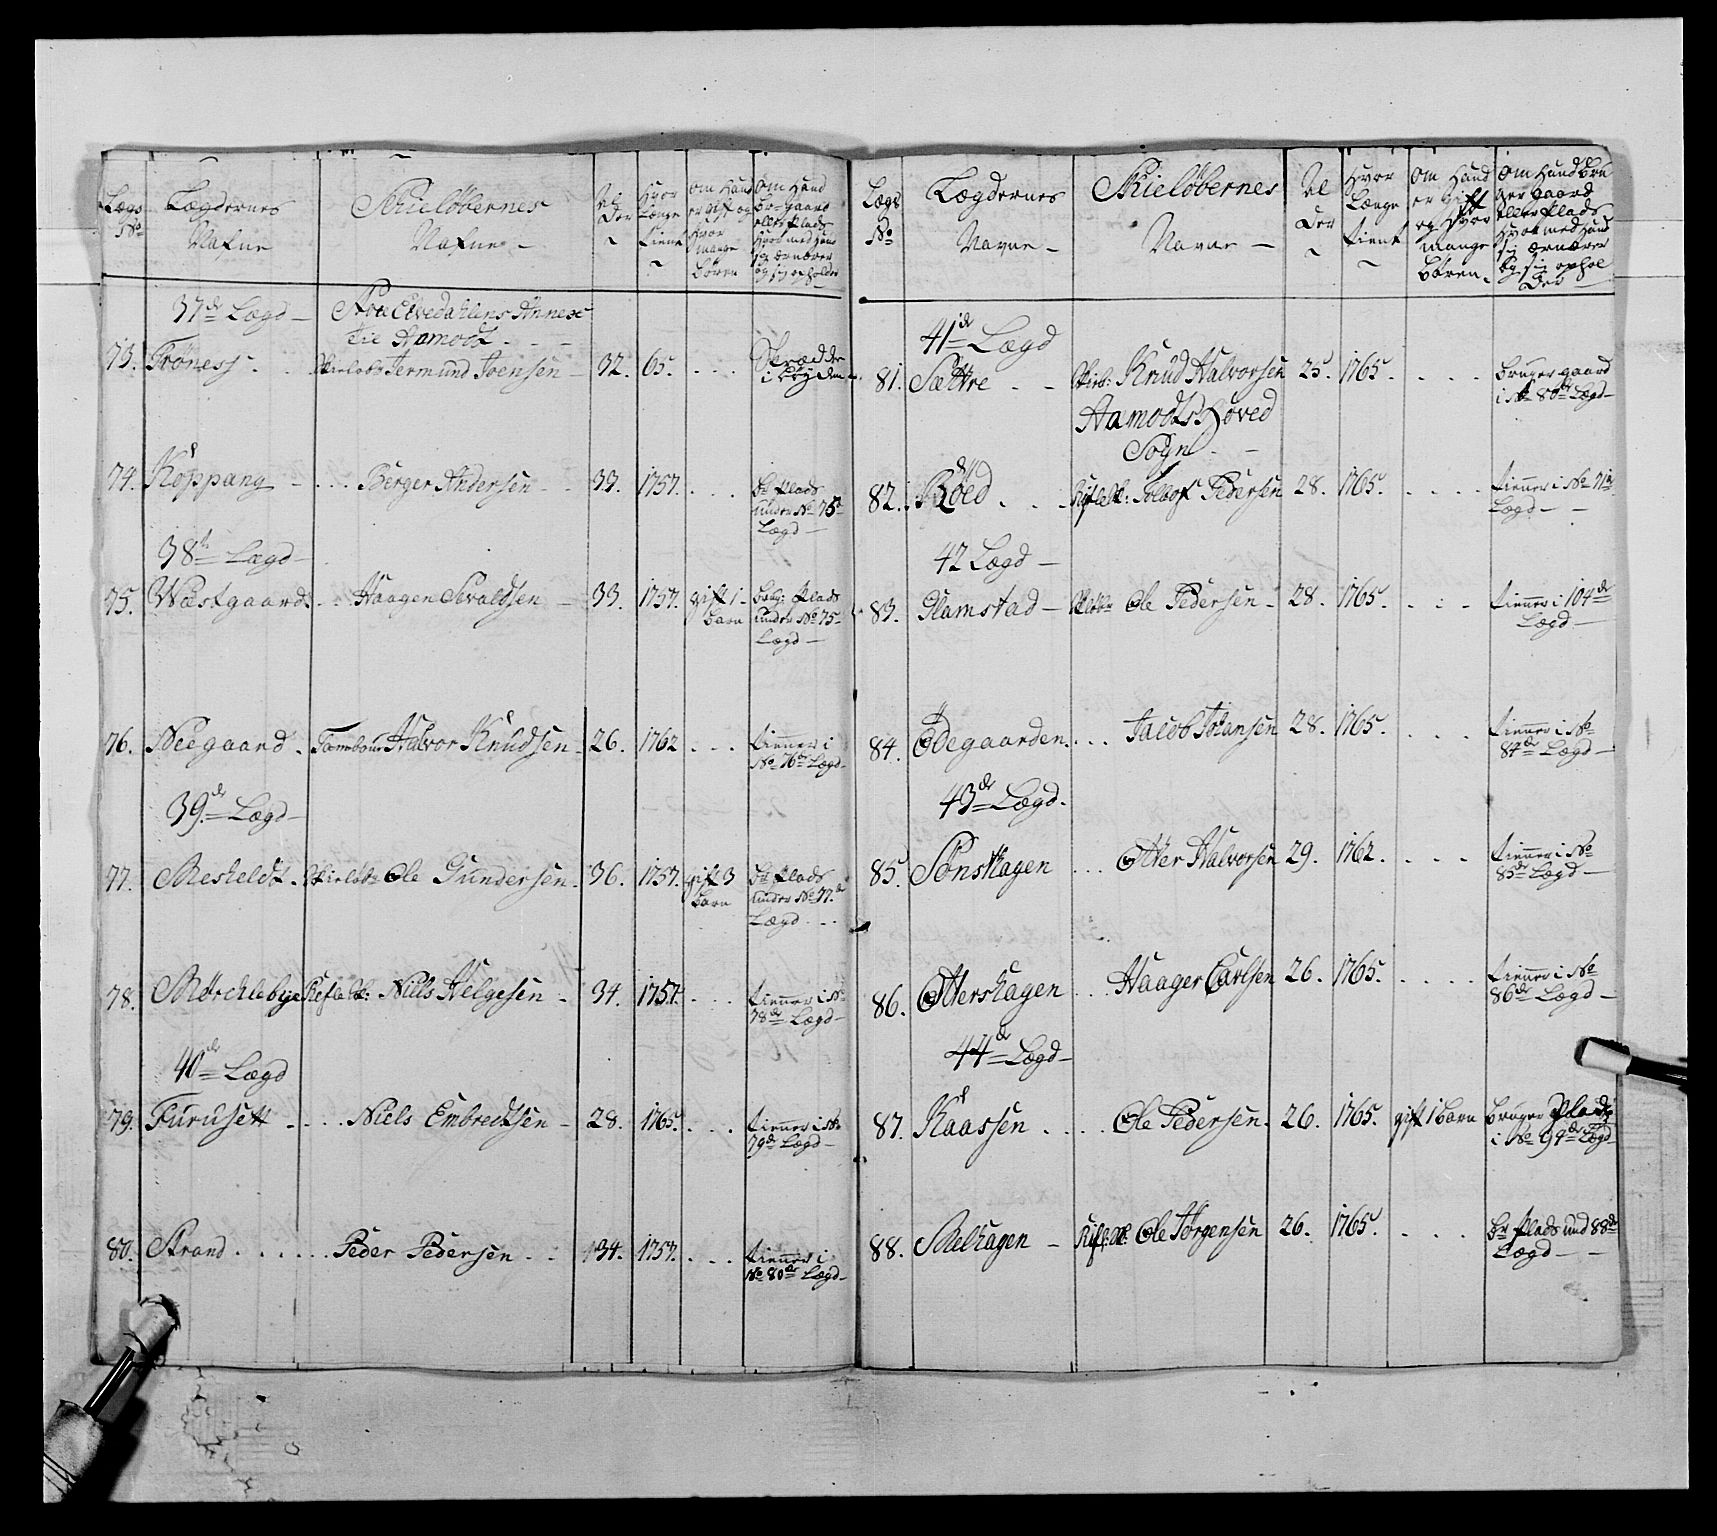 Lægs
No
Lægdernes
Nafne
Skieløbernes
Nafne –
Al
der
Hvor
Længe
tient
om Hand
er gift og
Hvor
mange
børen
Om Hand
br. gaard
eller plads
Hvor med Hand
sig ærnærer
og sig opholder
37de Lægd –
Store Elvedahlens Annex
til Aamodt
73. Trøness
Skieløb: Jermund Joensen – 32. 65. . . . Skrædder
i bygden
74. Koppang – . . . Berger Andersen – 33. 1757. . . . Br. plads
under No 75
Lægd –
38te Lægd –
75. Wæstgaard . . . Haagen Sivaldsen – 33. 1757. gift 1
barn
brug: plads
under No 75
Lægd –
76. Neegaard . Tambour Halvor Knudsen – 26. 1762 . . . tienner i
No 76de Lægd –
39de Lægd –
77. Messeldt . Skieløb: Ole Gundersen . 36. 1757. gift 3
barn
Br. plads
under No 77de
Lægd . . .
78. Mørchlebye Rifle Sk: Niels Helgesen – 34. 1757. . . . tienner i No
78de Lægd –
40de Lægd
79. Furusett . . . . Niels Embredtsen – 28. 1765. . . . tienner i No
79de Lægd –
80. Strand . . . . . . Peder Pedersen . . 34. 1757. . . . tienner i
No 80de Lægd –
Lægs
No
Lægdernes
Navne –
Skieløbernes
Navne –
Al
der
Hvor
Længe
tient
Om Hand
er gift
og Hvor
mange
børen
Om Hand bru
ger gaard
eller plads
Hvor med Hand
sig ærnærer
og sig ophol
der
41de Lægd
81. Sættre . – Skieb: Knud Halvorsen 25. 1765. . . . . bruger gaard
i No 80de Lægd –
Aamodts Hoved
Sogn . –
82. Røed . . . Rifle Sk: Tollof Pedersen 28. 1765. . . . . tienner i No 71de
Lægd –
42 Lægd –
83. Glamstad – Ole Pedersen . 28. 1765. . . . tienner i 104de
Lægd –
84. Ødegaarden . . . Jacob Johansen 28. 1765. . . . . tienner i No
84de Lægd –
43de Lægd .
85. Sønskagen . . . Otter Halvorsen 29. 1762. . . . . tienner i No
85de Lægd –
86. Otterskagen . . . Haager Carlsen 26. 1765. . . . . tienner i No
86de Lægd –
44de Lægd –
87. Kaassen . . . . Ole Pedersen . 26. 1765. gift 1 barn bruger plads
i No 94de Lægd
88. Melhagen – Rifle Sk: Ole Jørgensen 26. 1765. . . . br. plads und 88de
Lægd –